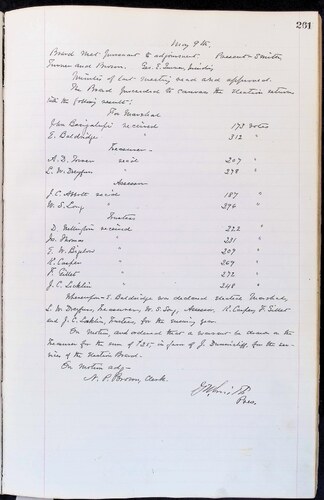 261
May 9th.
Board met pursuant to adjournment. Present Smith,
Turner and Brown.
Minutes of last meeting read and approved.
The Board proceeded to canvass the election returns
with the following result:
For Marshal
John received 173 votes
E. Baldridge " 312 "
Treasurer
A. D. rec'd 207 "
L. W. Dreyfus " 278 "
Assessor
J. C. Abbott rec'd 187 "
W. S. Long " 294 "
Trustees
D. received 222 "
Jno. Thomas " 231 "
E. W. Bigelow " 207 "
R. Cooper " 247 "
F. " 272 "
J. C. " 248 "
Whereupon E. Baldridge was declared elected Marshal,
L. W. Dreyfus, Treasurer, W. S. Long, Assessor, R. Cooper, F.
and J. C. Trustees, for the ensuing year.
On motion, and ordered that a warrant be drawn on the
Treasurer for the sum of $25, in favor of J. for the ser-
vices of the Election Board.
On motion adj-
N. P. Brown, Clerk.
Smith
Pres.